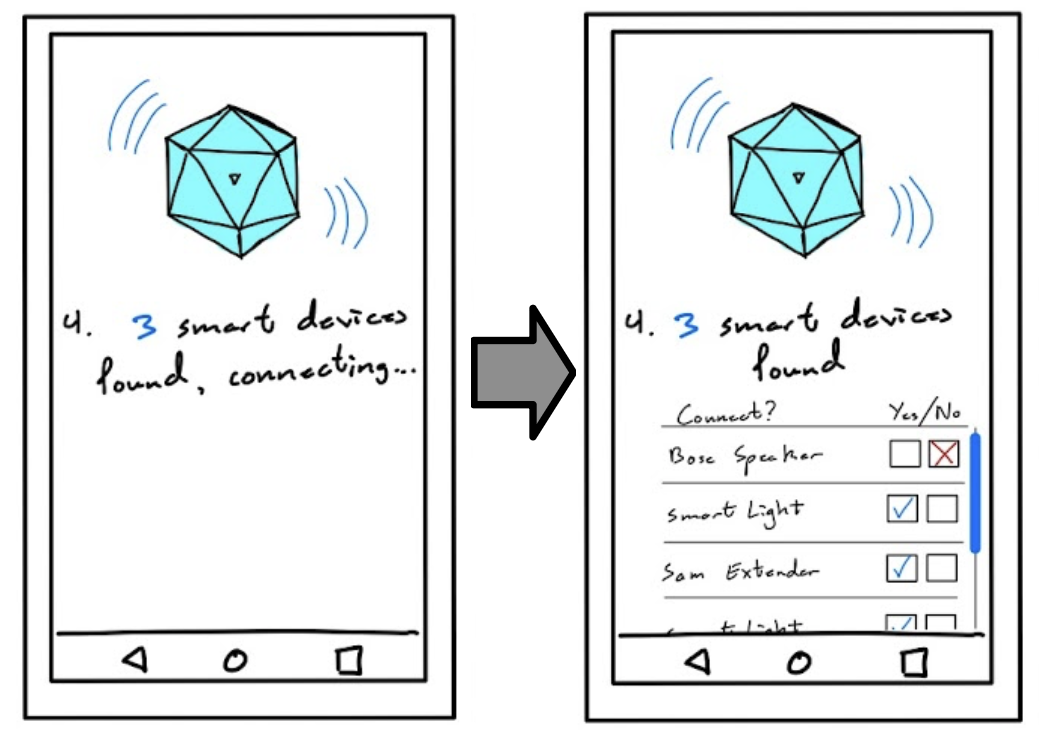 4. 3 smart devices
found, connecting...
4. 3 smart devices
found
Connect? Yes/No
Bose Speaker
Smart Light
Sam Extender
Smart Light